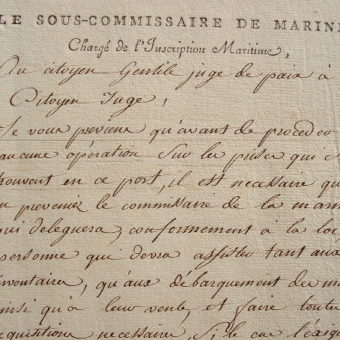 LE SOUS-COMMISSAIRE DE MARIN
Chargé de l'Inscription Maritime,
Au citoyen Gentile juge de paix à
Citoyen Juge,
Je vous previens qu'avant de proceder
aucune opération Sur les prises qui
trouvent en ce port, il est necessaire que
prevenez le commissaire de la mari
qui deleguera, conformement à la loi
personne qui devra assister tant aux
inventaire, qu'aux débarquement des
ainsi qu'à leur vente, et faire toute
requisitions necessaires, Si le cas l'exig